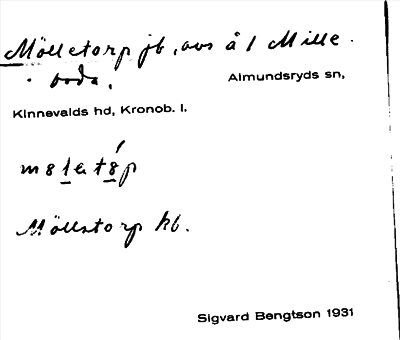 Mölletorp jb, avs å 1 Mille-
boda.
Almundsryds sn,
Kinnevalds hd, Kronob. l.
m8letǿp
Möllstorp kb.
Sigvard Bengtson 1931